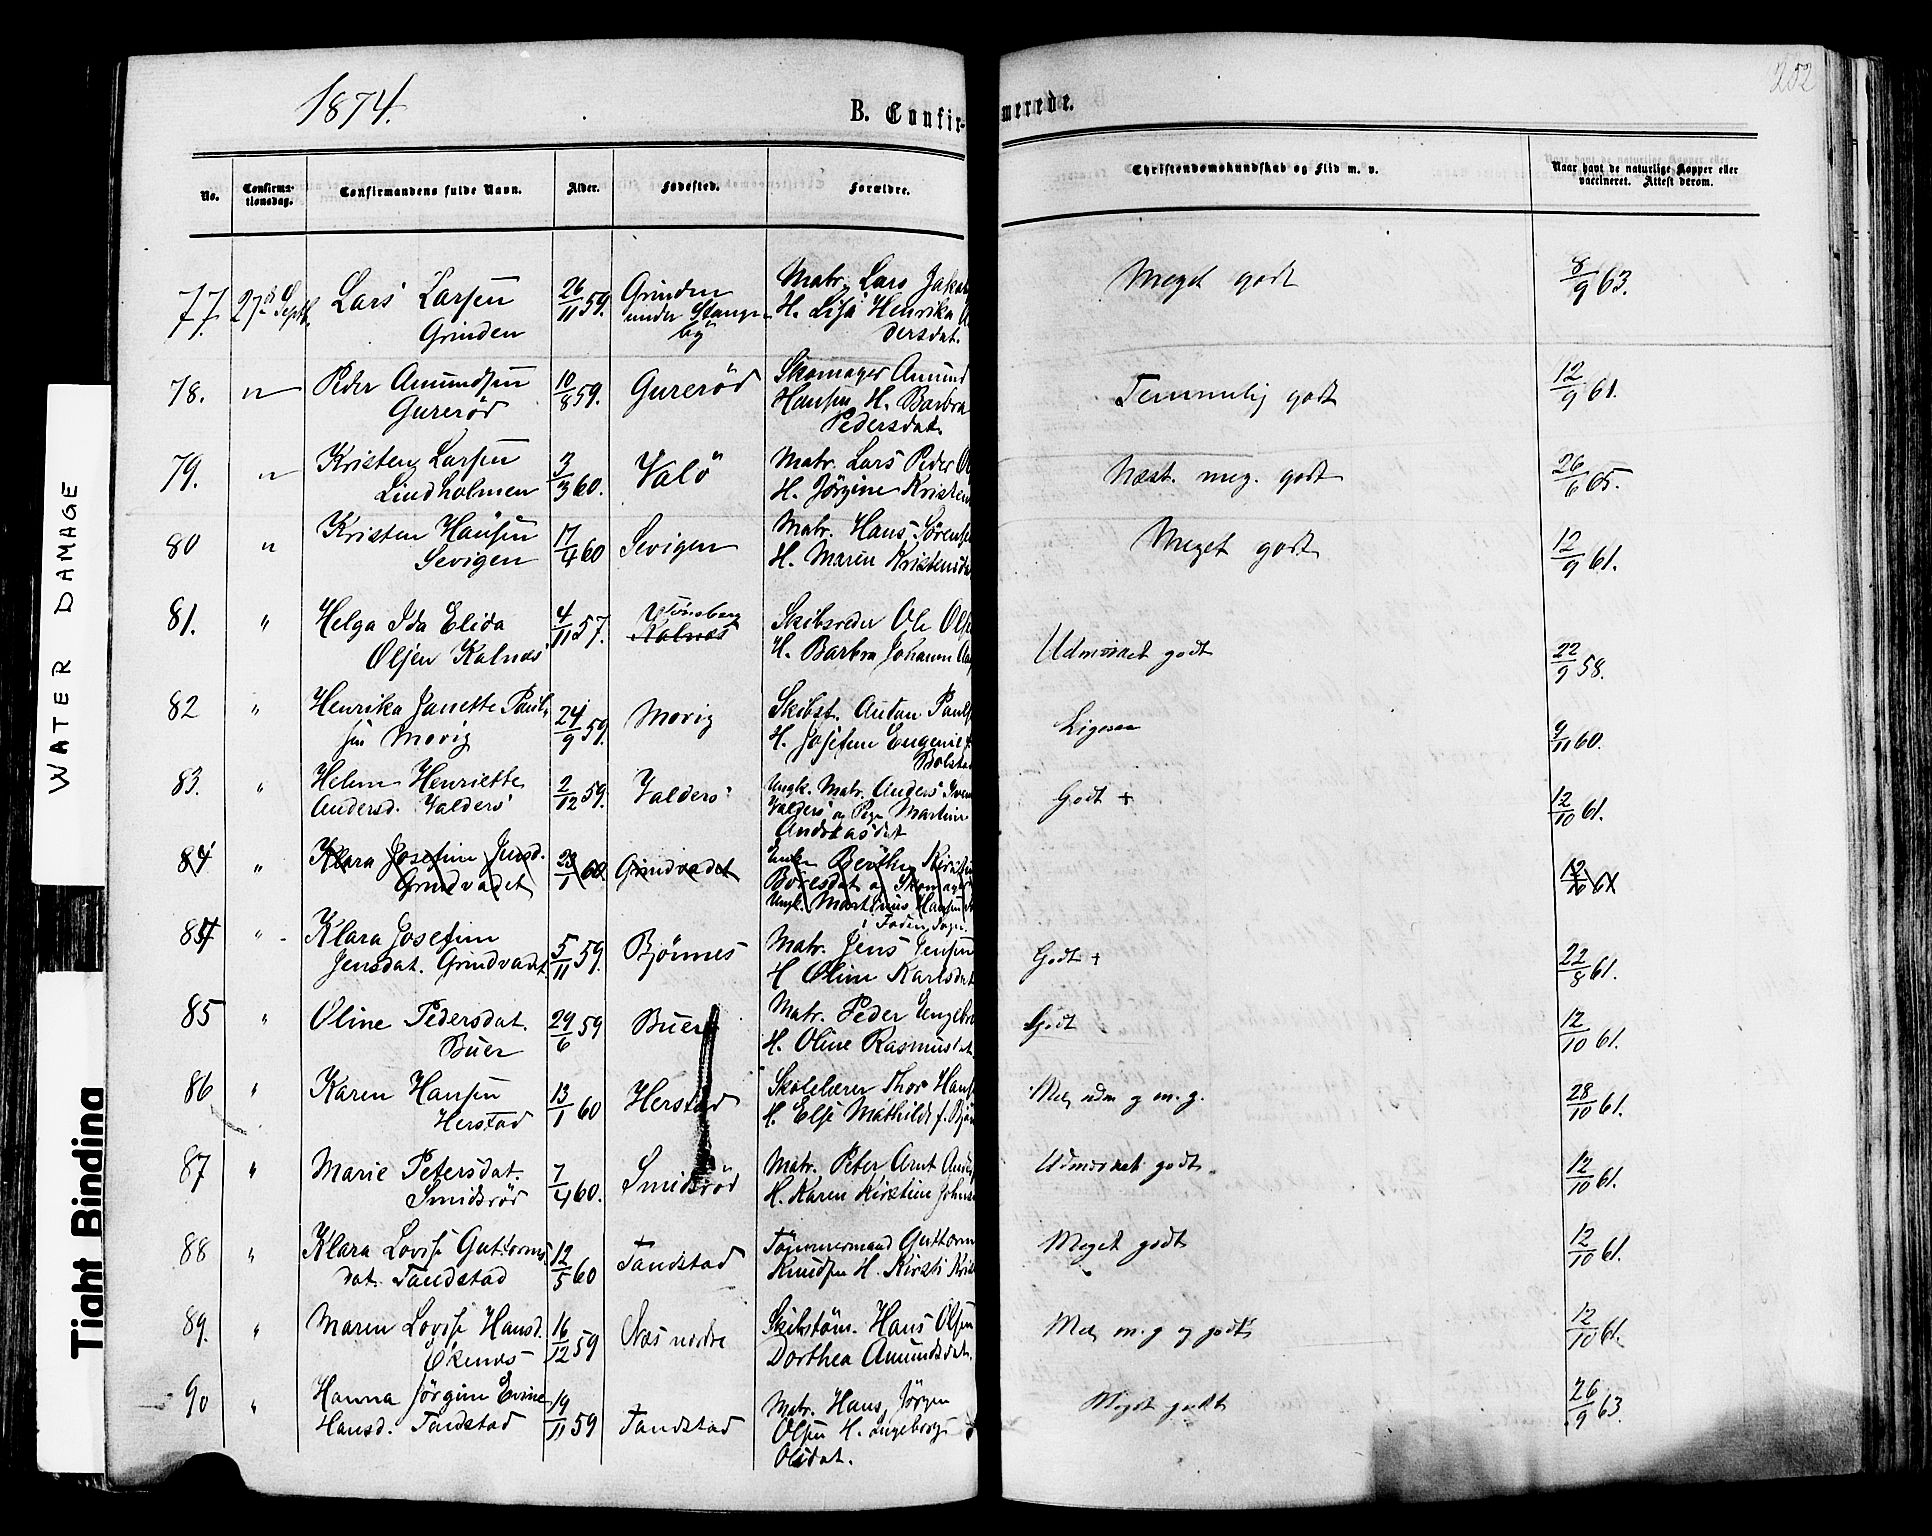 1874.
B. Confir-
merede.
202
No.
Confirma-
tionsdag.
Confirmandens fulde Navn.
Alder.
Fødested.
Forældre.
Christendomskundskab og Flid m. v.
Naar havt de naturlige Kopper eller
vaccineret. Attest derom.
77. 27de Septb. Lars Larsen 26/11 59. Grinden Matr. Lars Jakob Meget godt 8/9 63.
Grinden under Stange- H. Lisa Henrika
by dersdat.
78. " Peder Amundsen 10/8 59. Gurerød Skomager Amund Temmelig godt 12/9 61.
Gurerød Hansen H. Barbra
Pedersdat.
79. " Kristen Larsen 3/3 60. Valö Matr. Lars Peder Næst. meg. godt 26/6 65.
Lindholmen H. Jørgine Kristen
80 " Kristen Hansen 17/4 60 Sevigen Matr. Hans Sørense Meget godt 12/9 61.
Sevigen H. Maren Kristensda
81. " Helga Ida Elida 4/11 57. Tønsberg Skibsreder Ole Olse Udmærket godt 22/9 58.
Olsen Kalnæs Kalnæs H. Barbra Johanne
82 " Henrika Janette Paul- 24/9 59. Morig Skibst. Anton Pauls Ligesaa 9/11 60.
sen Morig H. Josefine Eugenie f.
Bolstad
83. " Helene Henriette 2/12 59. Valders Ungk. Matr. Anders Iver Godt + 12/10 61.
Andersd. Valders Valders og Pige Martine
Andreasdat
84 " Klara Josefine Jensd. 23/1 60 Grindvadet Enken Berthe Kirstin 12/10 61
Grindvadet Boresdat og Skomager
Ungk. Martinus Hansen
Faderen Søger.
84 " Klara Josefine 5/11 59. Bjønnes Matr. Jens Jensen Godt + 22/8 61.
Jensdat. Grindvadet H Oline Karlsdat
85 " Oline Pedersdat. 29/6 59 Buer Matr. Peder Engebre Godt 12/10 61.
Buer H. Oline Rasmusdat
86 " Karen Hansen 13/1 60 Herstad Skolelærer Thor Hans Mel. udm og m. g. 28/10 61.
Herstad H. Else Mathilde f. Bjø
87 " Marie Petersdat. 7/4 60. Smidsrød Matr. Peter Arnt Ande Udmærket godt. 12/10 61.
Smidsrör H. Karen Kirstine Johns
88 " Klara Lovise Guttorms 12/5 60 Tandstad Tømmermand Guttorm Meget godt 12/10 61.
dat. Tandstad Knudsen H. Kirsti Kris
89. " Maren Lovise Hansd. 16/12 59 Næs nedre Skibstøm. Hans Olsen Mel. m. g og godt 12/10 61.
Ekenæs Dorthea Amundsdat.
90 " Hanna Jörgine Evine 19/11 59 Tandstad Matr. Hans Jörgen Meget godt 26/9 63.
Hansd. Tandstad Olsen H. Ingeborg
Olsdat.
WATER DAMAGE
Tight Binding